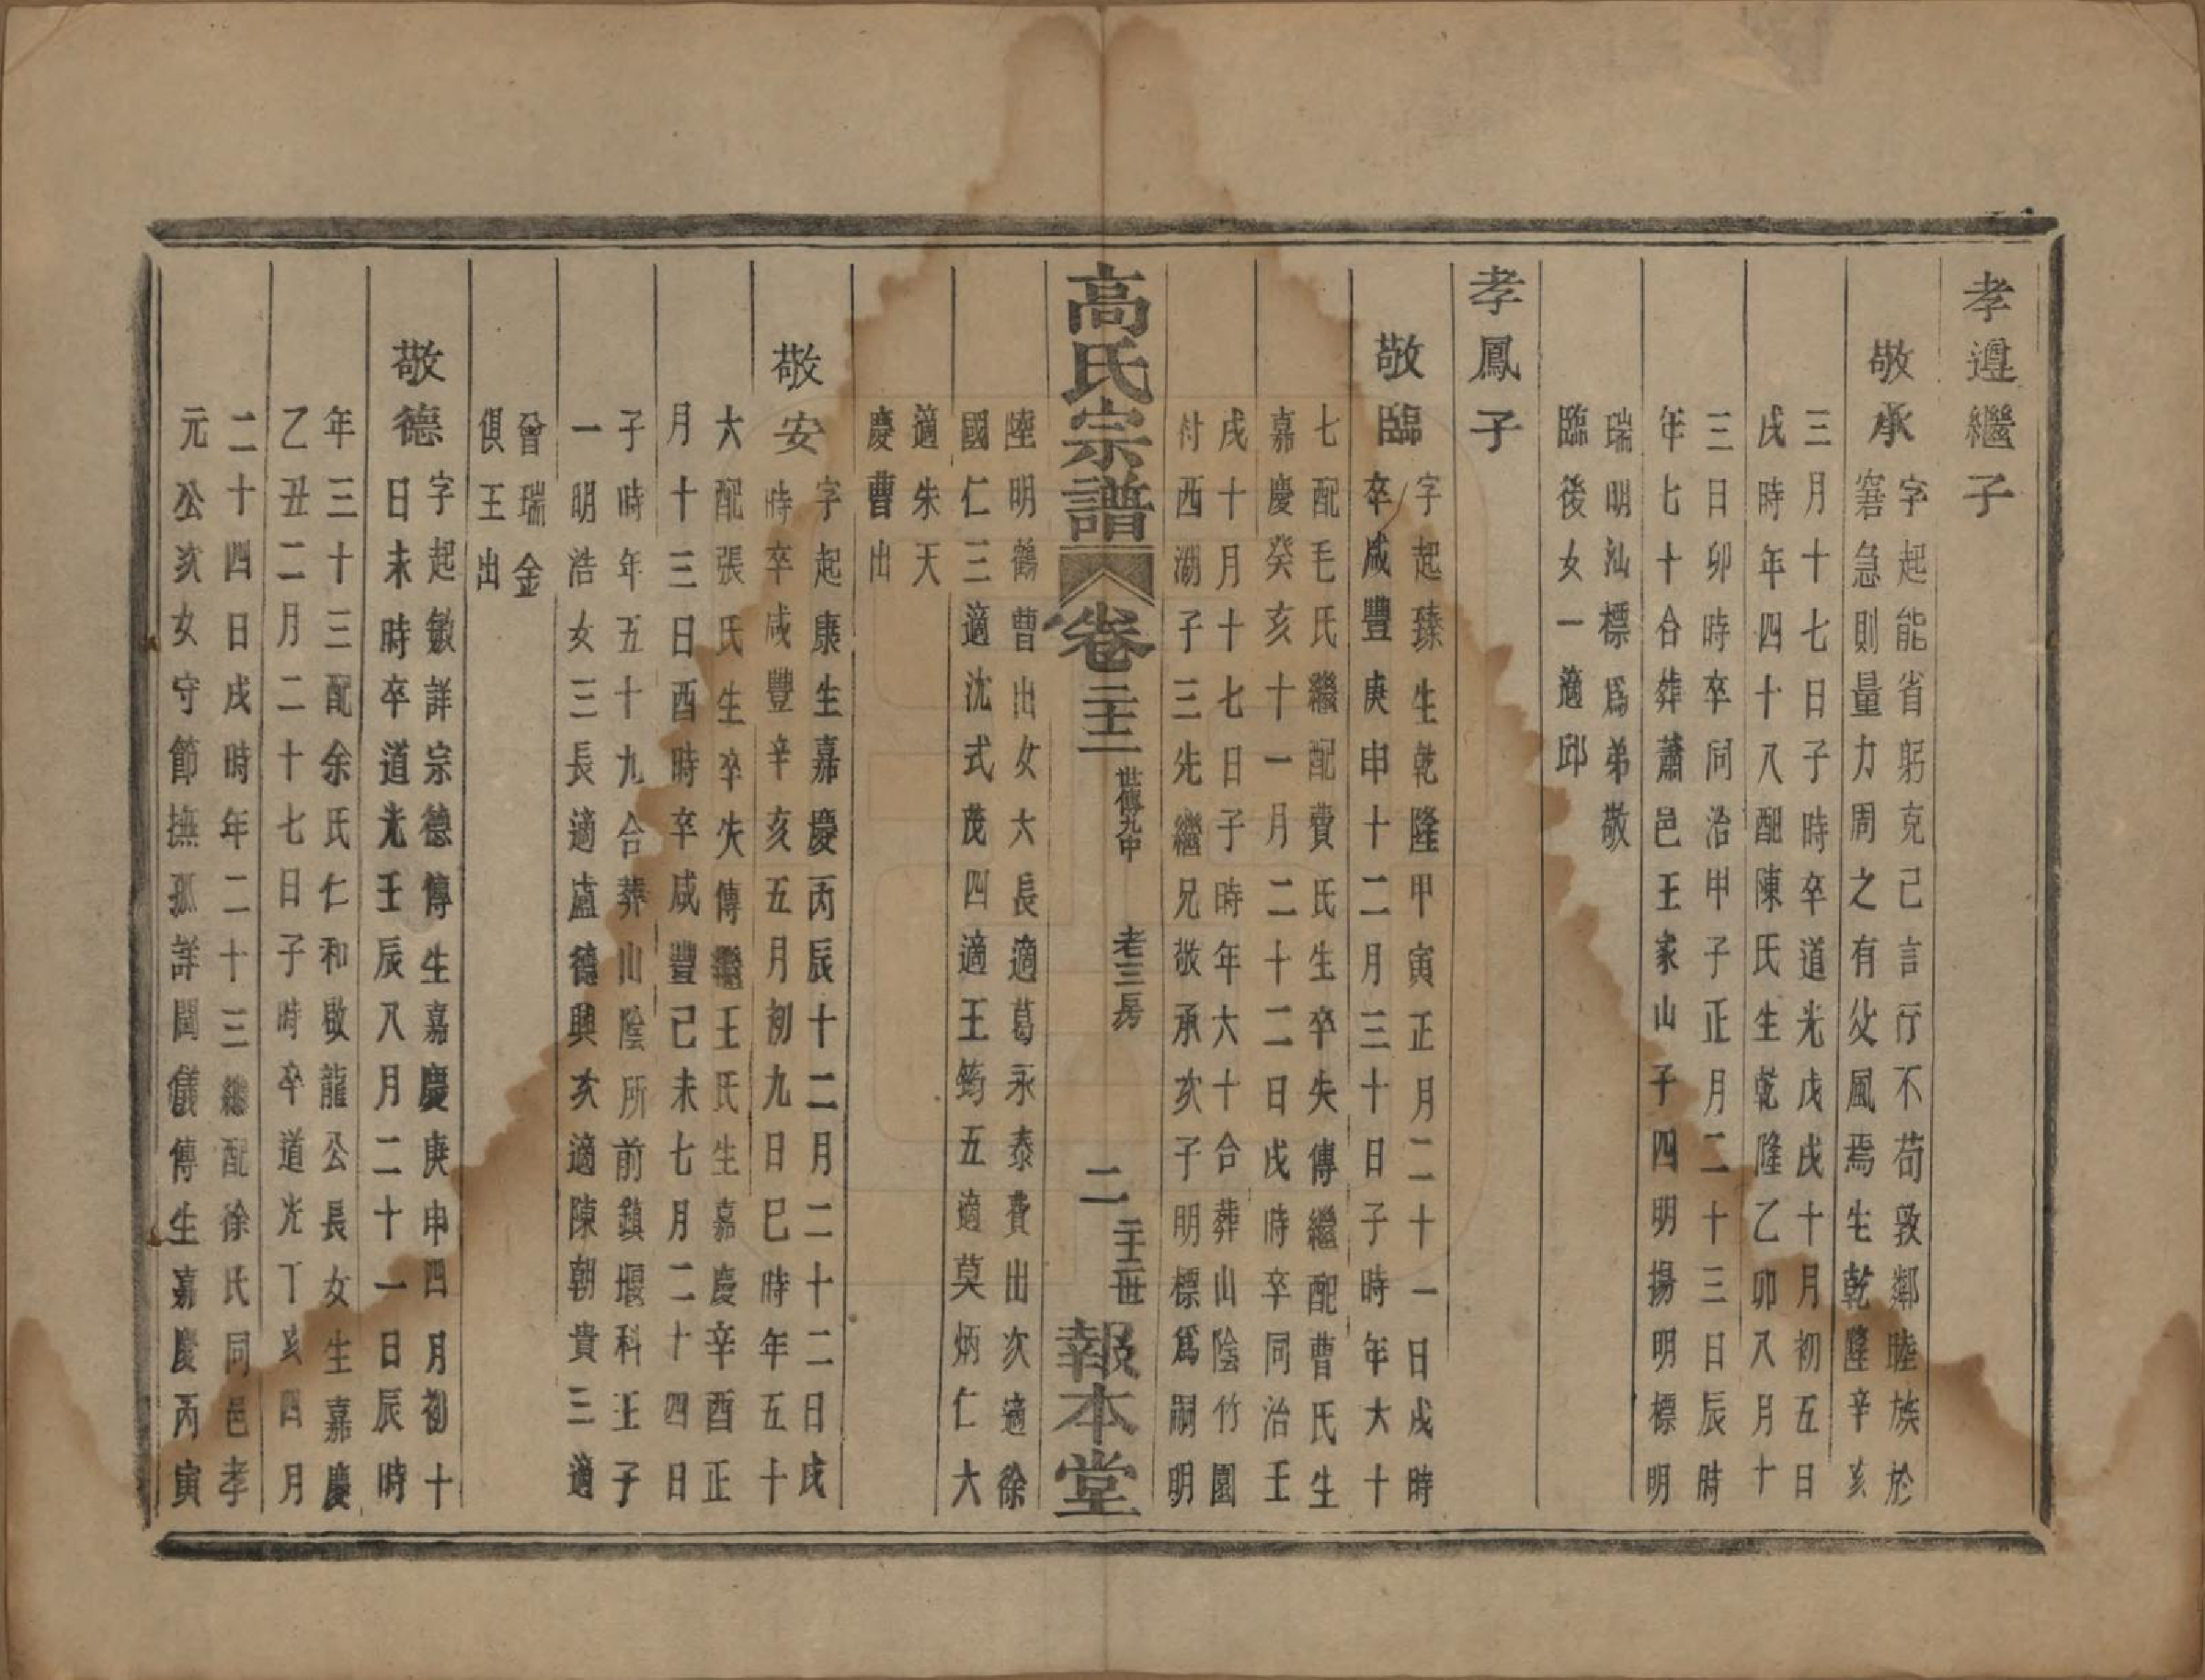 孝遵繼子
敬承
字起能省躬克己言行不苟敦鄰睦族於
窘急則量力周之有父風焉生乾隆辛亥
三月十七日子時卒道光戊戌十月初五日
戌時年四十八配陳氏生乾隆乙卯八月十
三日卯時卒同治甲子正月二十三日辰時
年七十合葬蕭邑王家山子四明揚明標明
瑞明汕標爲弟敬
臨後女一適邱
孝鳳子
敬臨
字起臻生乾隆甲寅正月二十一日戌時
卒咸豐庚申十二月三十日子時年六十
七配毛氏繼配費氏生卒失傳繼配曹氏生
嘉慶癸亥十一月二十二日戌時卒同治壬
戌十月十七日子時年六十合葬山陰竹園
付西湖子三先繼兄敬承次子明標爲嗣明
陞明鶴曹出女六長適葛永泰費出次適徐
國仁三適沈式茂四適王筠五適莫炳仁六
適朱天
慶曹出
高氏宗譜 卷二十二 世傳九中 老三房 二 二十二世 報本堂
敬安
字起康生嘉慶丙辰十二月二十二日戌
時卒咸豐辛亥五月初九日巳時年五十
六配張氏生卒失傳繼王氏生嘉慶辛酉正
月十三日酉時卒咸豐己未七月二十四日
子時年五十九合葬山陰所前鎮堰科王子
一明浩女三長適盧德興次適陳朝貴三適
曾瑞金
俱王出
敬德
字起敏詳宗德傳生嘉慶庚申四月初十
日未時卒道光壬辰八月二十一日辰時
年三十三配余氏仁和敬龍公長女生嘉慶
乙丑二月二十七日子時卒道光丁亥四月
二十四日戌時年二十三繼配徐氏同邑孝
元公次女守節撫孤詳閨儀傳生嘉慶丙寅